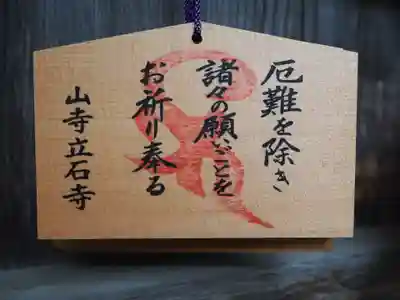 厄難を除き
諸々の願いごとを
お祈り奉る
山寺立石寺